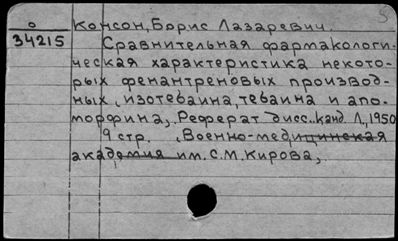 5
о Консон, Борис Лазаревич.
34215 Сравнительная фармакологи-
ческая характеристика некото-
рых фенантреновых производ-
ных (изотебаина, тебаина и апо-
морфина). Реферат дисс..канд Л., 1950
9 стр. (Военно-медицинская
академия им. С.М.Кирова)